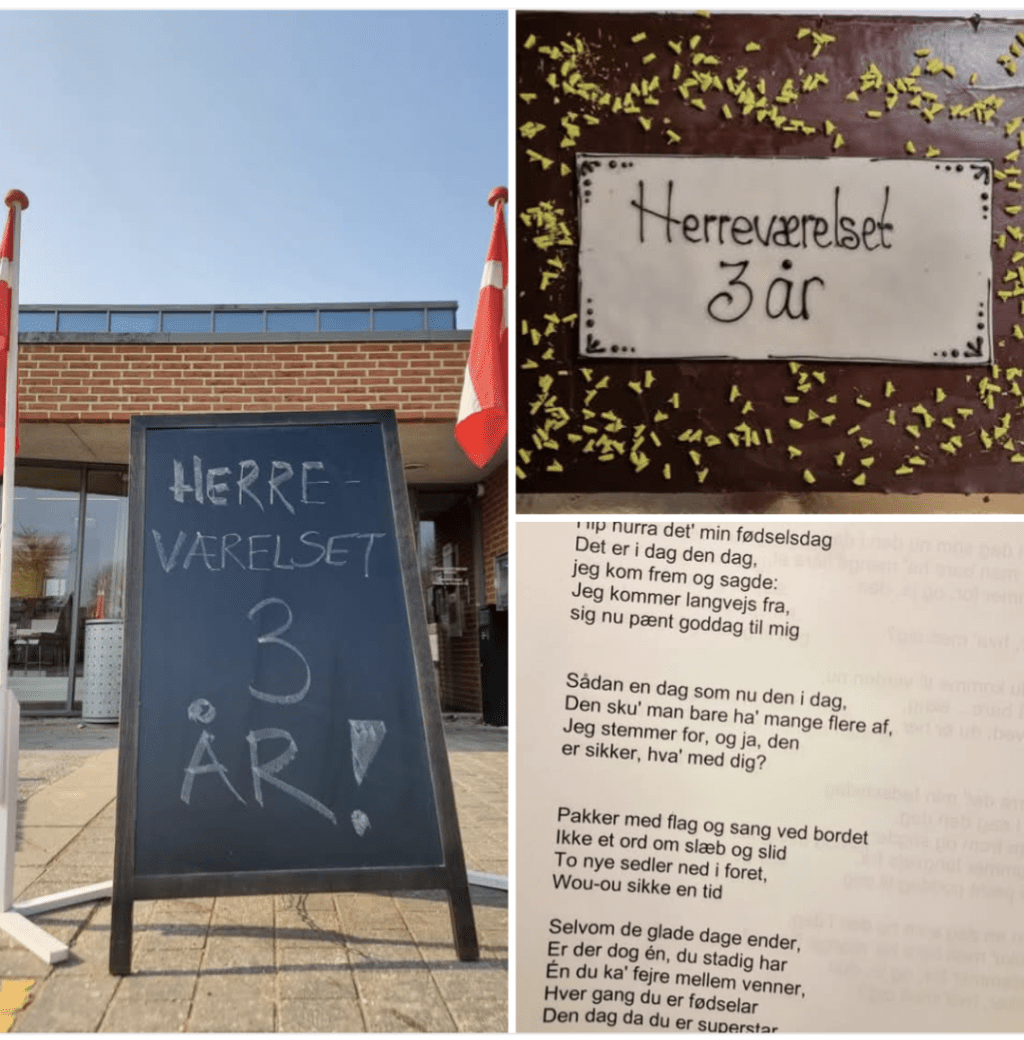 HERRE-
VÆRELSET
3
ÅR!
Herreværelset
3 år
Hip hurra det' min fødselsdag
Det er i dag den dag,
jeg kom frem og sagde:
Jeg kommer langvejs fra,
sig nu pænt goddag til mig
Sådan en dag som nu den i dag,
Den sku' man bare ha' mange flere af,
Jeg stemmer for, og ja, den
er sikker, hva' med dig?
Pakker med flag og sang ved bordet
Ikke et ord om slæb og slid
To nye sedler ned i foret,
Wou-ou sikke en tid
Selvom de glade dage ender,
Er der dog én, du stadig har
Én du ka' fejre mellem venner,
Hver gang du er fødselar
Den dag da du er superstar